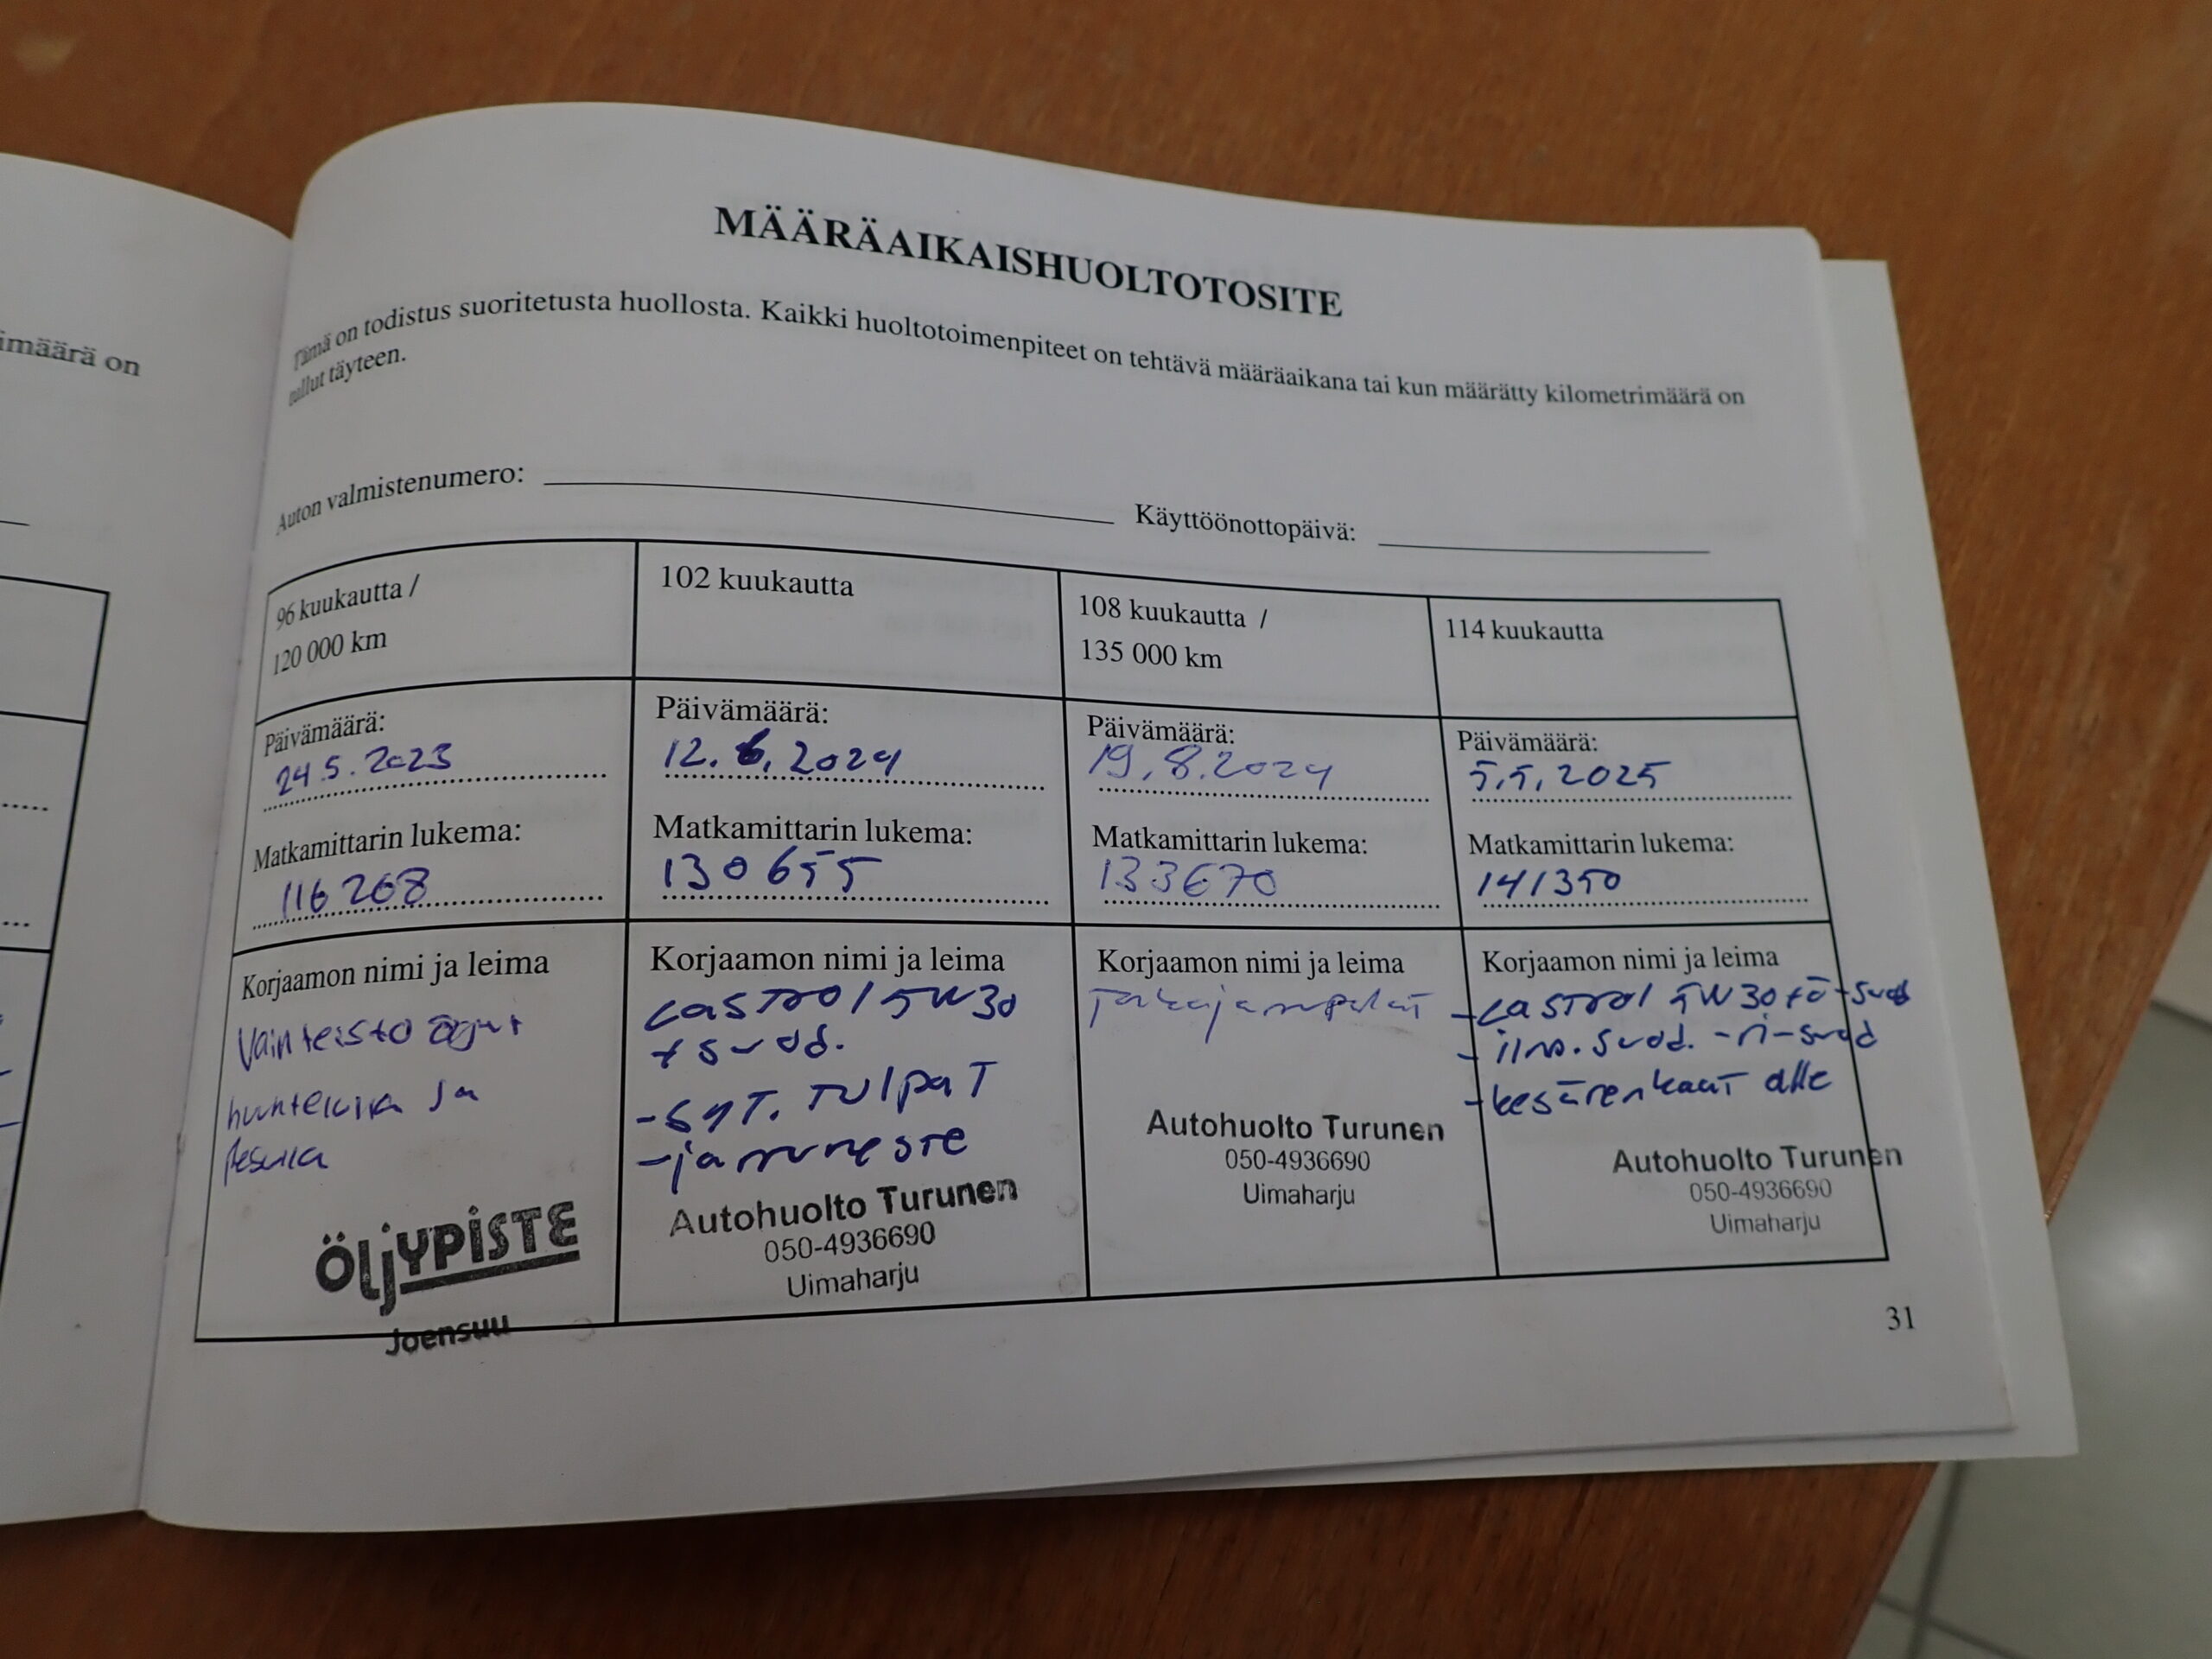 imäärä on
MÄÄRÄAIKAISHUOLTOTOSITE
Tämä on todistus suoritetusta huollosta. Kaikki huoltotoimenpiteet on tehtävä määräaikana tai kun määrätty kilometrimäärä on
tullut täyteen.
Auton valmistenumero: Käyttöönottopäivä:
96 kuukautta /
120 000 km
Päivämäärä:
24.5.2023
Matkamittarin lukema:
116268
Korjaamon nimi ja leima
Vainteisto öljyt
huuhteluna ja
pesulla
ÖLJYPISTE
Joensuu
102 kuukautta
Päivämäärä:
12.6.2024
Matkamittarin lukema:
130655
Korjaamon nimi ja leima
castrol 5W30
+ suod.
-syt. tulpat
-jarruneste
Autohuolto Turunen
050-4936690
Uimaharju
108 kuukautta /
135 000 km
Päivämäärä:
19.8.2024
Matkamittarin lukema:
133670
Korjaamon nimi ja leima
Takajarrupalat
Autohuolto Turunen
050-4936690
Uimaharju
114 kuukautta
Päivämäärä:
5.5.2025
Matkamittarin lukema:
141350
Korjaamon nimi ja leima
-castrol 5W30+ö-suod
- ilm. suod. -ri-suod
-kesärenkaat alle
Autohuolto Turunen
050-4936690
Uimaharju
31